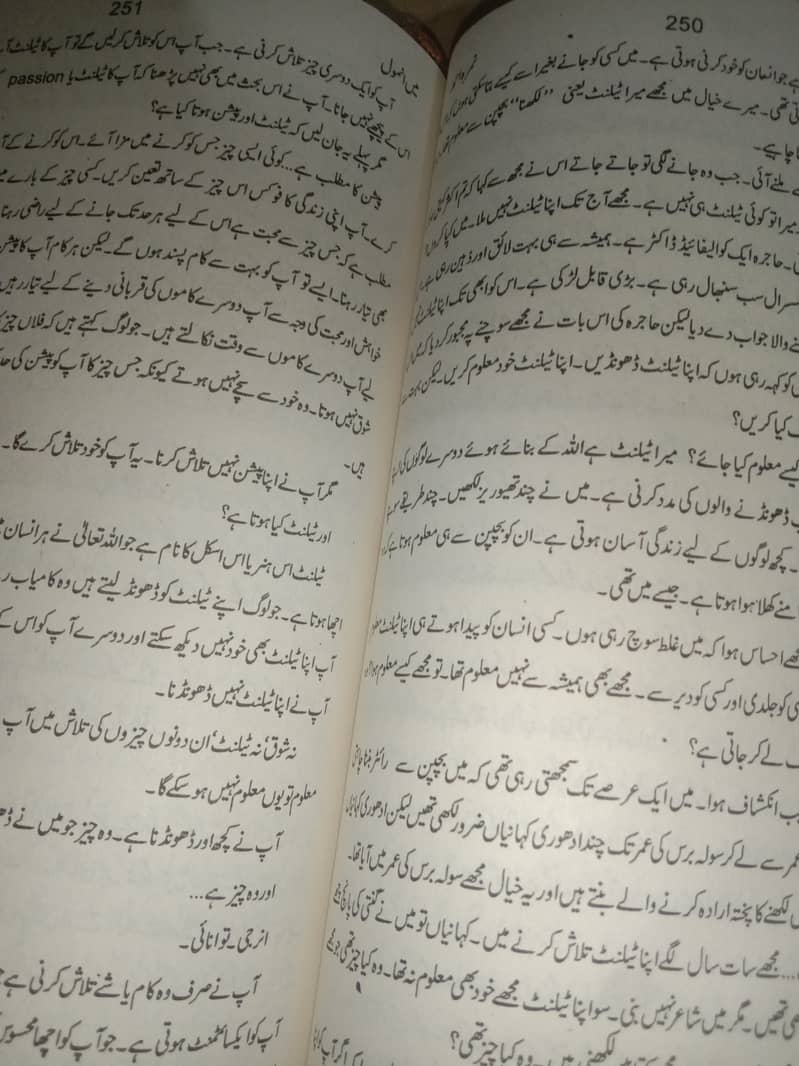 250
ہے جو انسان کو خود کرنی ہوتی ہے۔ میں کسی کو جانے بغیر اسے کیسے بتا سکتی ہوں کہ
تی تھی۔ میرے خیال میں مجھے میرا ٹیلنٹ یعنی ”لکھنا“ بچپن سے معلوم تھا
نا چاہیے۔
ے ملنے آئی۔ جب وہ جانے لگی تو جاتے جاتے اس نے مجھ سے کہا کہ تم اکثر
میرا تو کوئی ٹیلنٹ ہی نہیں ہے۔ مجھے آج تک اپنا ٹیلنٹ نہیں ملا۔ میں کیا کروں
حاجرہ ایک کوالیفائیڈ ڈاکٹر ہے۔ ہمیشہ سے ہی بہت لائق اور ذہین رہی ہے
سرال سب سنبھال رہی ہے۔ بڑی قابل لڑکی ہے۔ اس کو ابھی تک اپنا ٹیلنٹ
نے والا جواب دے دیا لیکن حاجرہ کی اس بات نے مجھے سوچنے پر مجبور کر دیا کہ میں
کو کہہ رہی ہوں کہ اپنا ٹیلنٹ ڈھونڈیں۔ اپنا ٹیلنٹ خود معلوم کریں۔ لیکن
کیا کریں؟
کیسے معلوم کیا جائے؟ میرا ٹیلنٹ ہے اللہ کے بنائے ہوئے دوسرے لوگوں کی
ڈھونڈنے والوں کی مدد کرنی ہے۔ میں نے چند تھیوریز لکھیں۔ چند طریقے
۔ کچھ لوگوں کے لیے زندگی آسان ہوتی ہے۔ ان کو بچپن سے ہی معلوم ہوتا ہے کہ
منے کھلا ہوا ہوتا ہے۔ جیسے میں تھی۔
ھے احساس ہوا کہ میں غلط سوچ رہی ہوں۔ کسی انسان کو پیدا ہوتے ہی اپنا ٹیلنٹ
ی کو جلدی اور کسی کو دیر سے۔ مجھے بھی ہمیشہ سے نہیں معلوم تھا۔ تو مجھے کیسے معلوم ہوا
لے کر جاتی ہے؟
ب انکشاف ہوا۔ میں ایک عرصے تک سمجھتی رہی تھی کہ میں بچپن سے رائٹر بننا چاہتی
عمر سے لے کر سولہ برس کی عمر تک چند ادھوری کہانیاں ضرور لکھی تھیں لیکن ادھوری کہانیاں
لکھنے کا پختہ ارادہ کرنے والے بنتے ہیں اور یہ خیال مجھے سولہ برس کی عمر میں آیا تھا۔
... مجھے سات سال لگے اپنا ٹیلنٹ تلاش کرنے میں۔ کہانیاں تو میں نے گنتی کی پانچ
ھی تھیں۔ مگر میں شاعر نہیں بنی۔ سو اپنا ٹیلنٹ مجھے خود بھی معلوم نہ تھا۔ وہ کیا چیز تھی جو مجھے
لکھنی میں۔ وہ کیا چیز تھی؟
اگر آپ کو اپنا
251
میں انمول
آپ کو ایک دوسری چیز تلاش کرنی ہے۔ جب آپ اس کو تلاش کر لیں گے تو آپ کا ٹیلنٹ آ
اس کے پیچھے نہیں جانا۔ آپ نے اس بحث میں بھی نہیں پڑھنا کہ آپ کا ٹیلنٹ یا passion
مگر پہلے یہ جان لیں کہ ٹیلنٹ اور پیشن ہوتا کیا ہے؟
پیشن کا مطلب ہے...کوئی ایسی چیز جس کو کرنے میں مزا آئے۔ اس کو کرنے کے
کرے۔ آپ اپنی زندگی کا فوکس اس چیز کے ساتھ تعین کریں۔ کسی چیز کے بارے میں
مطلب ہے کہ جس چیز سے محبت ہے اس کے لیے ہر حد تک جانے کے لیے راضی رہنا
بھی تیار رہنا۔ ایسے تو آپ کو بہت سے کام پسند ہوں گے۔ لیکن ہر کام آپ کا پیشن
خواہش اور محبت کی وجہ سے آپ دوسرے کاموں کی قربانی دینے کے لیے تیار رہیں
لیے آپ دوسرے کاموں سے وقت نکالتے ہیں۔ جو لوگ کہتے ہیں کہ فلاں چیز
شوق نہیں ہوتا۔ وہ خود سے سچے نہیں ہوتے کیونکہ جس چیز کا آپ کو پیشن کی حد
ہیں۔
مگر آپ نے اپنا پیشن نہیں تلاش کرنا۔ یہ آپ کو خود تلاش کرے گا۔
اور ٹیلنٹ کیا ہوتا ہے؟
ٹیلنٹ اس ہنر یا اس اسکل کا نام ہے جو اللہ تعالیٰ نے ہر انسان
اچھا ہوتا ہے۔ جو لوگ اپنے ٹیلنٹ کو ڈھونڈ لیتے ہیں وہ کامیاب
آپ اپنا ٹیلنٹ بھی خود نہیں دیکھ سکتے اور دوسرے آپ کو اس کے
آپ نے اپنا ٹیلنٹ نہیں ڈھونڈنا۔
نہ شوق‘ نہ ٹیلنٹ‘ ان دونوں چیزوں کی تلاش میں آپ
معلوم تو یوں معلوم نہیں ہو سکے گا۔
آپ نے کچھ اور ڈھونڈنا ہے۔ وہ چیز جو میں نے ڈھ
اور وہ چیز ہے...
انرجی۔ توانائی۔
آپ نے صرف وہ کام یا شے تلاش کرنی ہے
آپ کو ایکسائٹمنٹ ہوتی ہے۔ جو آپ کو اچھا محسوس